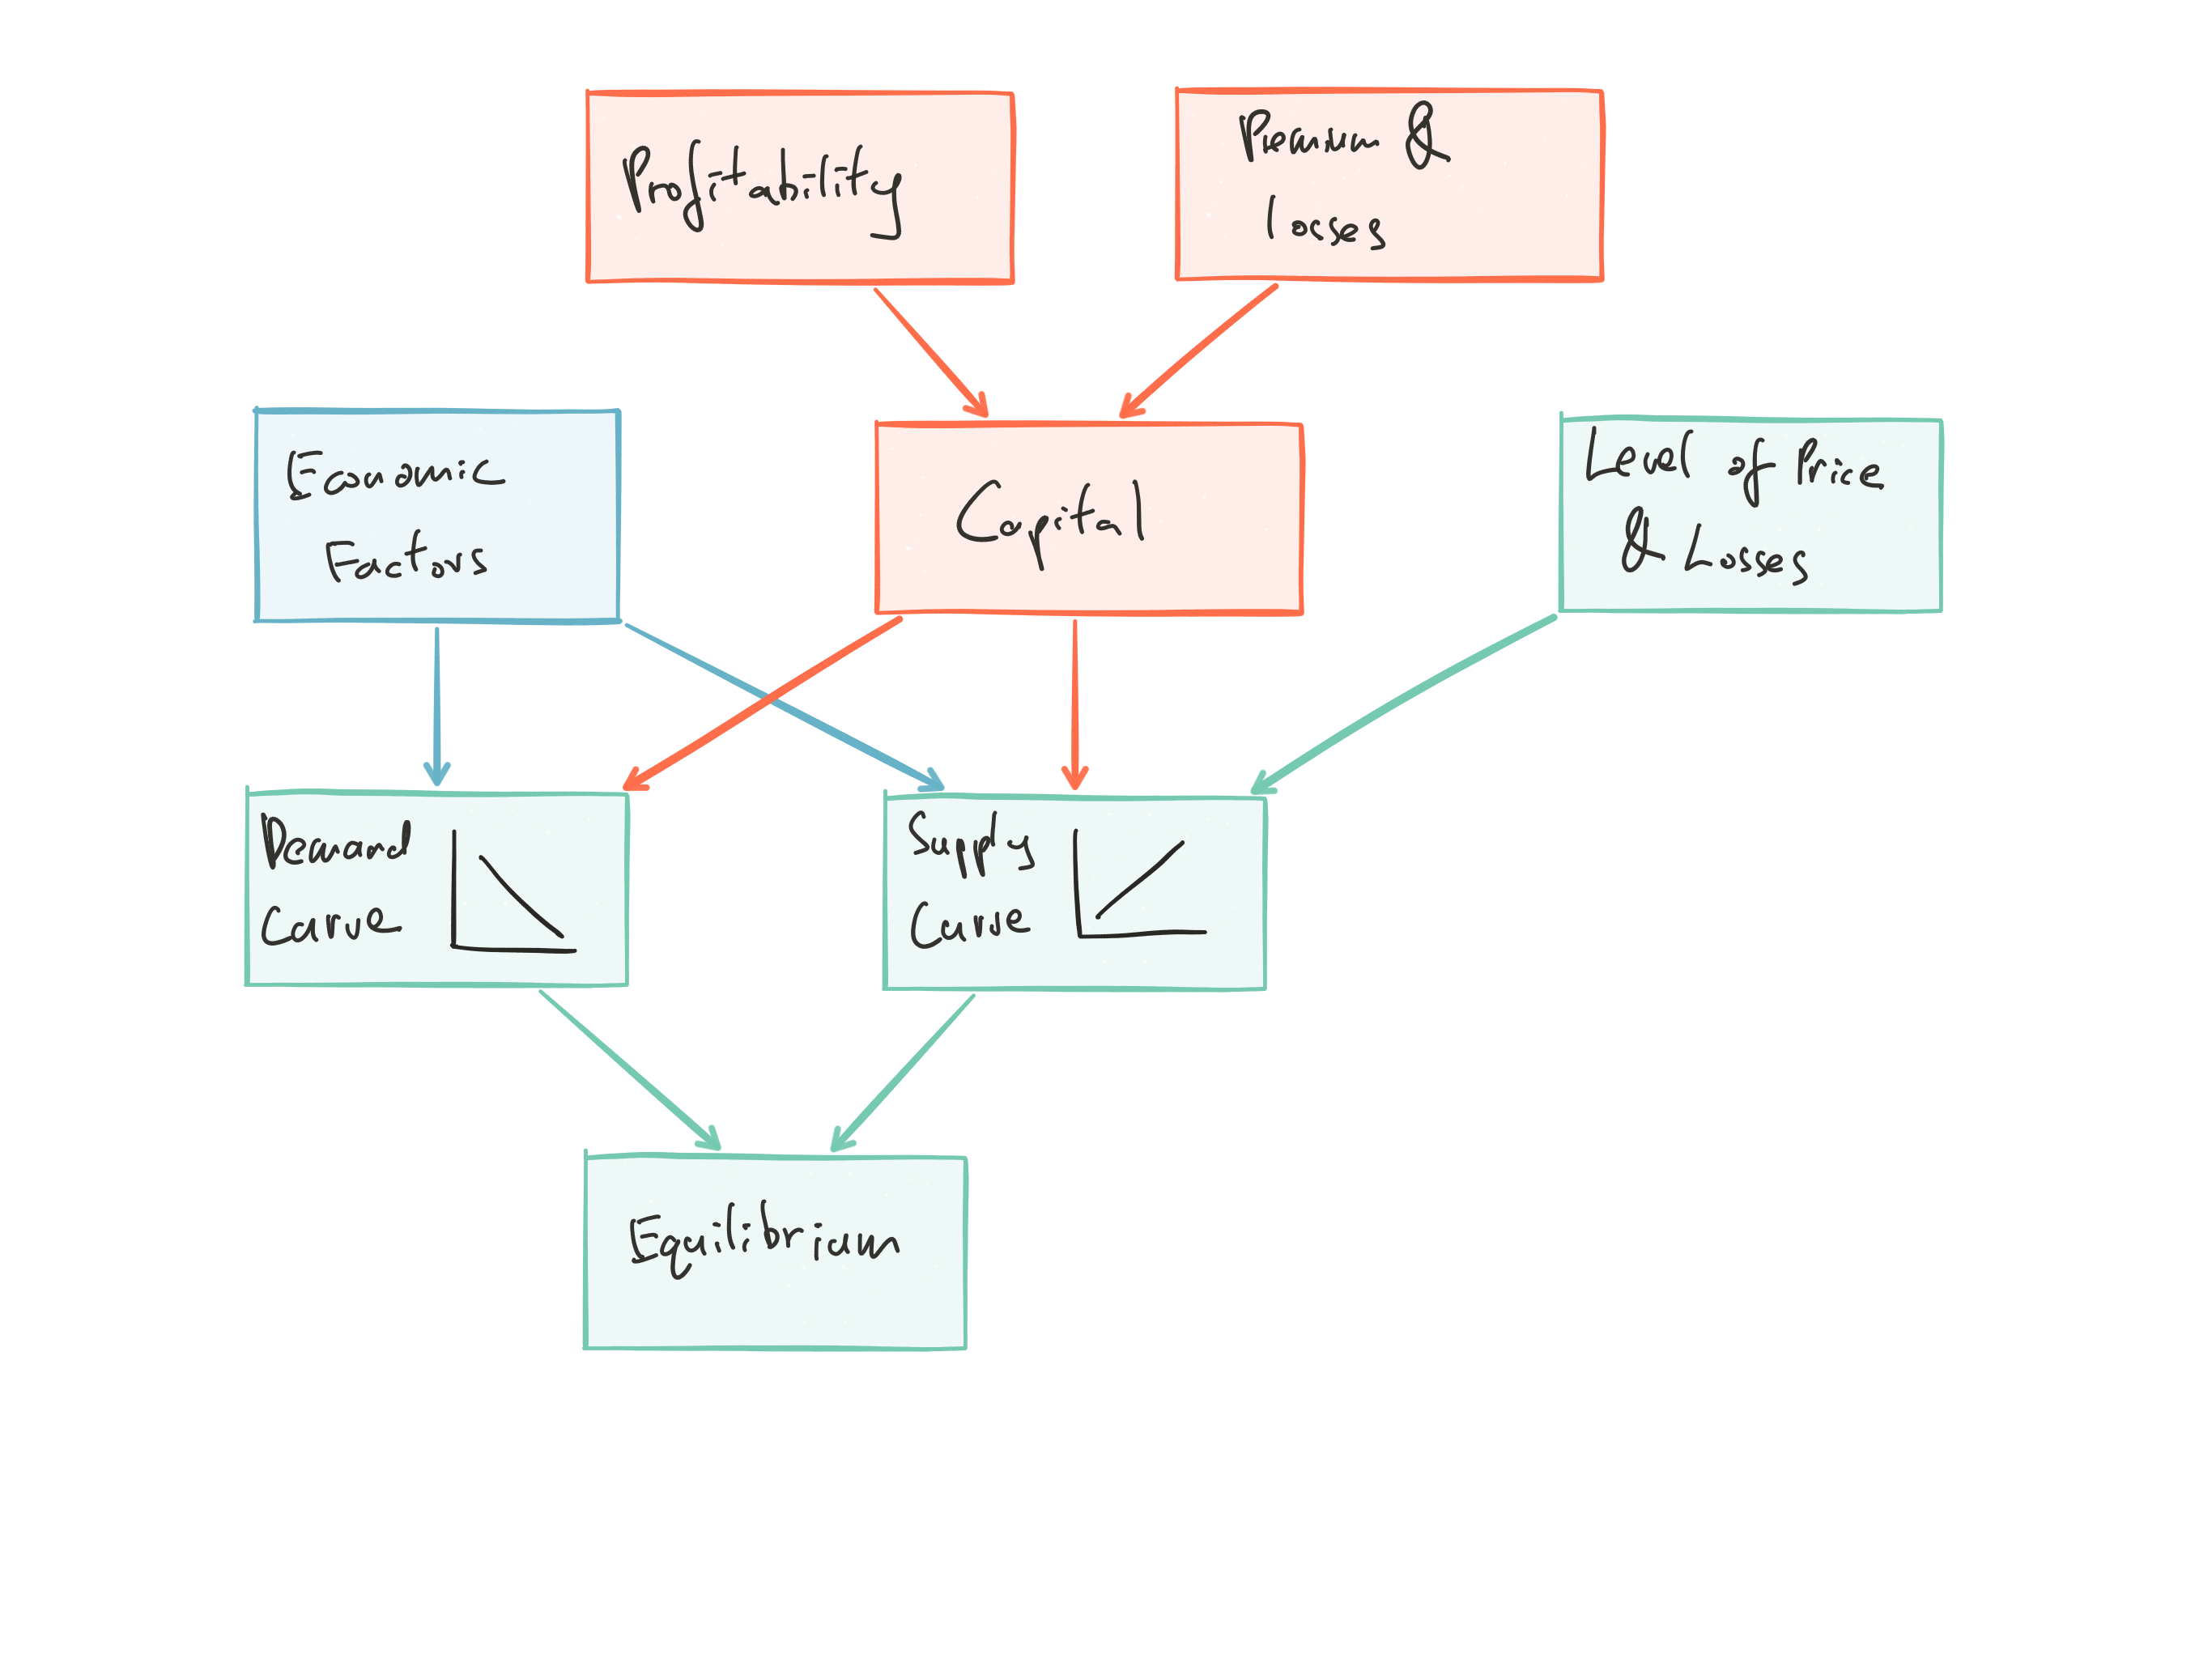 Profitability
Premium &
losses
Economic
Factors
Capital
Level of Price
& Losses
Demand
Curve
Supply
Curve
Equilibrium